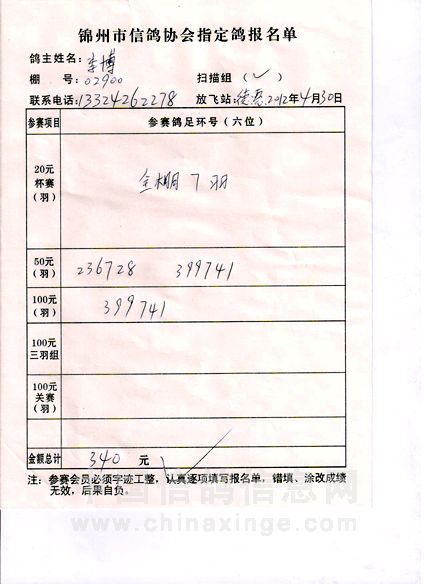 锦州市信鸽协会指定鸽报名单
鸽主姓名：李博
棚 号：02900 扫描组（✓）
联系电话：13324262278 放飞站：德惠 2012年4月30日
参赛项目 参赛鸽足环号（六位）
20元
杯赛
（羽）
全棚 7 羽
50元
（羽）
236728 399741
100元
（羽）
399741
100元
三羽组
100元
关赛
（羽）
金额总计 340 元
注：参赛会员必须字迹工整，认真逐项填写报名单，错填、涂改成绩
无效，后果自负。
中国信鸽信息网
www.chinaxinge.com